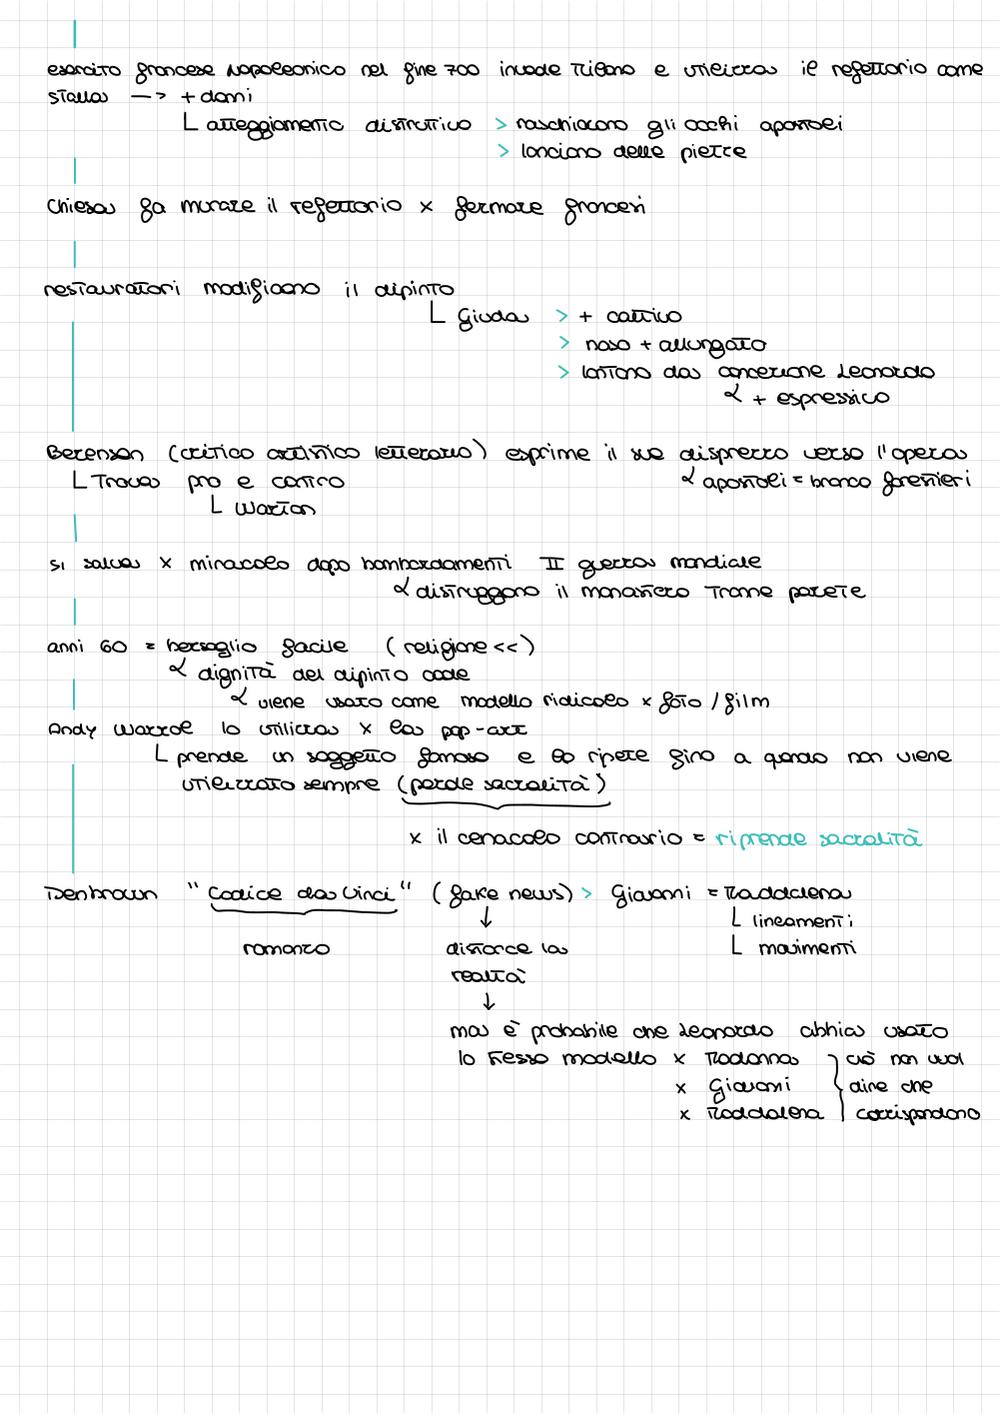 esercito francese Napoleonico nel fine 700 invade Milano e utilizza il refettorio come
stalla —> + danni
L atteggiamento distruttivo > raschiarono gli occhi apostoli
> lanciano delle pietre
Chiesa fa murare il refettorio x fermare francesi
restauratori modificano il dipinto
L Giuda > + cattivo
> naso + allungato
> lontano da concezione Leonardo
↳ + espressivo
Berenson (critico artistico letterario) esprime il suo disprezzo verso l'opera
L Trova pro e contro ↳ apostoli = branco forestieri
L Warton
si salva x miracolo dopo bombardamenti II guerra mondiale
↳ distruggono il monastero Tranne parete
anni 60 = bersaglio facile (religione <<)
↳ dignità del dipinto cade
↳ viene usato come modello ridicolo x foto / film
Andy Warrol lo utilizza x la pop-art
L prende un soggetto famoso e lo ripete fino a quando non viene
utilizzato sempre (perde sacralità)
x il cenacolo contrario = riprende sacralità
Denbrown "Codice da Vinci" (fake news) > Giovanni = Maddalena
↓ L lineamenti
romanzo distorce la L movimenti
realtà
↓
ma è probabile che Leonardo abbia usato
lo stesso modello x Madonna } ciò non vuol
x Giovanni dire che
x Maddalena corrispondano